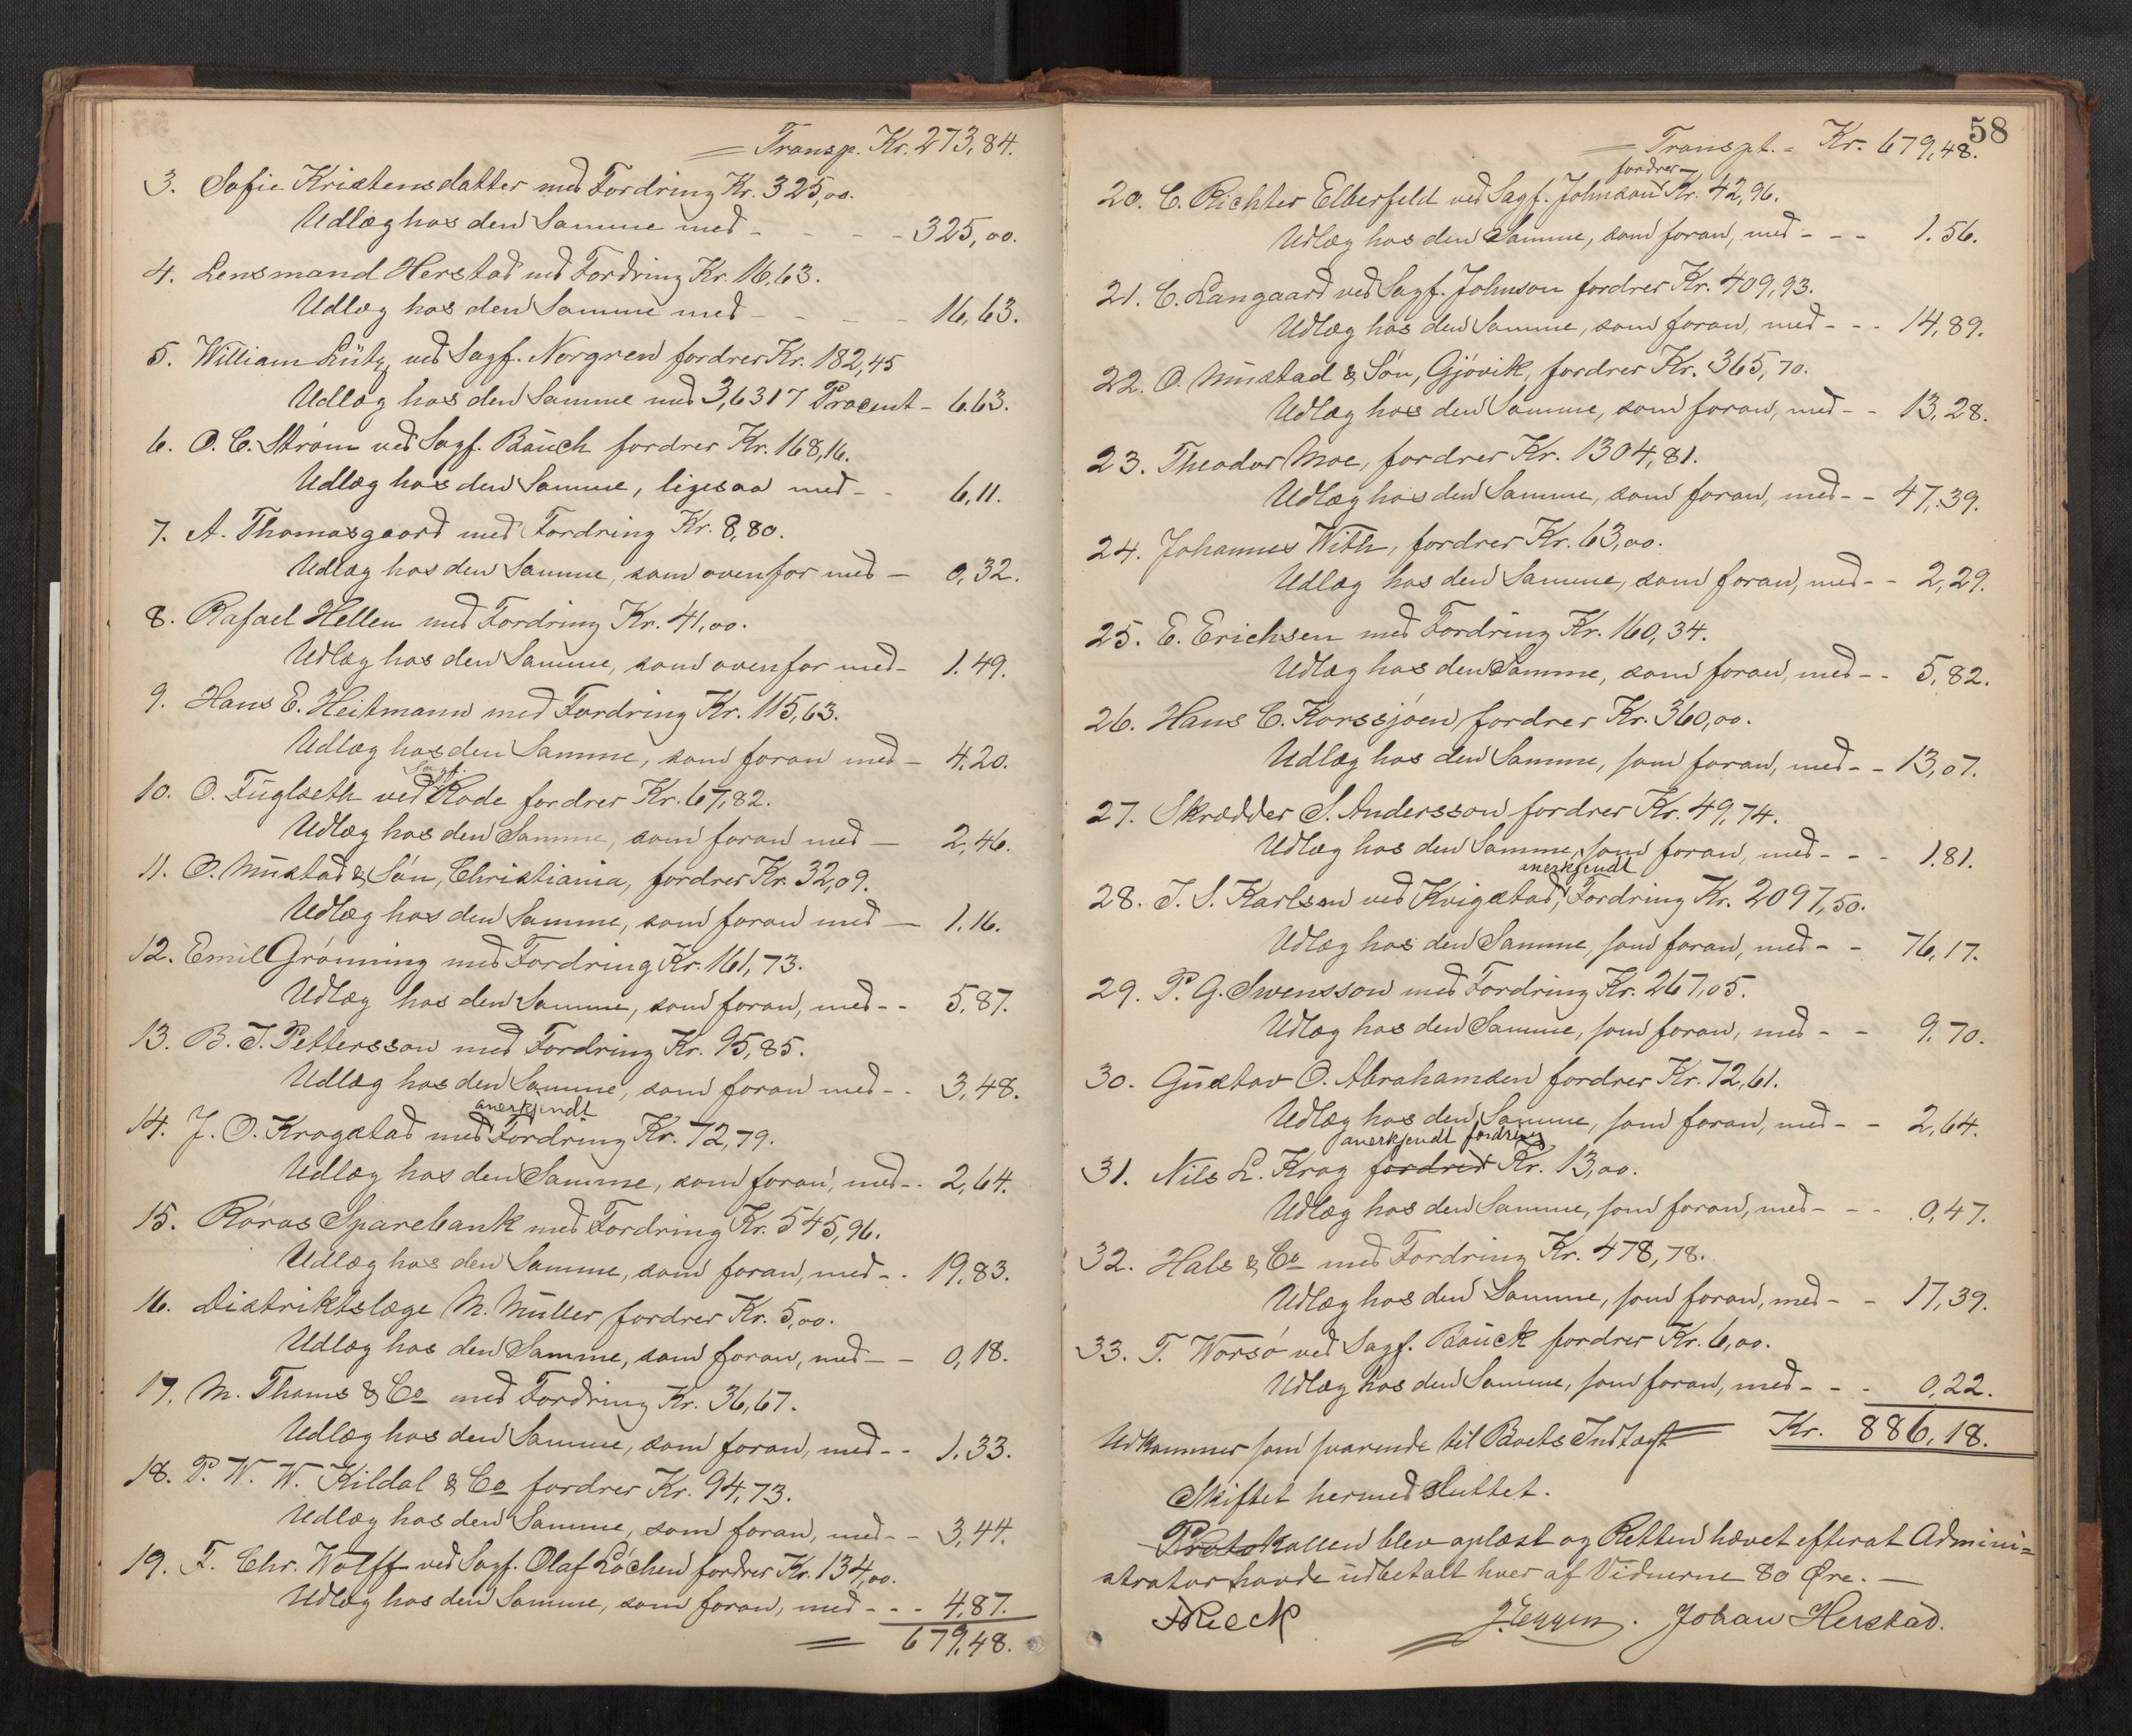 Transp. Kr. 273,84.
3. Sofie Kristensdatter med Fordring Kr. 325,00.
Udlæg hos den Samme med - - - - 325,00.
4. Lensmand Herstad med Fordring Kr. 16,63.
Udlæg hos den Samme med - - - - 16,63.
5. William Lütz, ved Sagf. Norgren fordrer Kr. 182,45
Udlæg hos den Samme med 3,6317 Procent - 6.63.
6. O. C. Strøm ved Sagf. Bauck fordrer Kr. 168,16.
Udlæg hos den Samme, ligesaa med - - 6,11.
7. A. Thomasgaard med Fordring Kr. 8,80.
Udlæg hos den Samme, som ovenfor med - 0,32.
8. Rafael Hellem med Fordring Kr. 41,00.
Udlæg hos den Samme, som ovenfor med - 1.49.
9. Hans E. Heitmann med Fordring Kr. 115,63.
Udlæg hos den Samme, som foran med - 4.20.
Sagf.
10. O. Fuglseth ved Rode fordrer Kr. 67,82.
Udlæg hos den Samme, som foran med - 2,46.
11. O. Mustad & Søn, Christiania, fordrer Kr. 32,09.
Udlæg hos den Samme, som foran med - 1.16.
12. Emil Grønning med Fordring Kr. 161,73.
Udlæg hos den Samme, som foran, med - - 5,87.
13. B. J. Pettersson med Fordring Kr. 95,85.
Udlæg hos den Samme, som foran med - - 3,48.
anerkjendt
14. J. O. Krogstad med Fordring Kr. 72,79.
Udlæg hos den Samme, som foran, med - - 2,64.
15. Røros Sparebank med Fordring Kr. 545,96.
Udlæg hos den Samme, som foran, med - - 19,83.
16. Distriktslæge M. Müller fordrer Kr. 5,00.
Udlæg hos den Samme, som foran, med - - 0,18.
17. M. Thams & Co med Fordring Kr. 36,67.
Udlæg hos den Samme, som foran, med - - 1.33.
18. P. W. W. Kildal & Co fordrer Kr. 94,73.
Udlæg hos den Samme, som foran, med - - 3,44.
19. F. Chr. Wolff ved Sagf. Olaf Løchen fordrer Kr. 134,00.
Udlæg hos den Samme, som foran, med - - - 4,87.
679,48.
58
Transpt. - Kr. 679,48.
fordrer
20. C. Richter Elberfeld ved Sagf. Johnson Kr. 42,96.
Udlæg hos den Samme, som foran, med - - - 1.56.
21. C. Langaard ved Sagf. Johnson fordrer Kr. 409,93.
Udlæg hos den Samme, som foran, med - - - 14,89.
22. O. Mustad & Søn, Gjøvik, fordrer Kr. 365,70.
Udlæg hos den Samme, som foran, med - - 13,28.
23. Theodor Moe, fordrer Kr. 1304,81.
Udlæg hos den Samme, som foran, med - - 47,39.
24. Johannes With, fordrer Kr. 63,00.
Udlæg hos den Samme, som foran, med - - 2,29.
25. E. Erichsen med Fordring Kr. 160,34.
Udlæg hos den Samme, som foran, med - - 5,82.
26. Hans C. Korssjøen fordrer Kr. 360,00.
Udlæg hos den Samme, som foran, med - - 13,07.
27. Skrædder S. Andersson fordrer Kr. 49,74.
Udlæg hos den Samme, som foran, med - - - 1.81.
anerkjendt
28. J. S. Karlsen ved Kvigstad, Fordring Kr. 2097,50.
Udlæg hos den Samme, som foran, med - - 76,17.
29. P. G. Swensson med Fordring Kr. 267,05.
Udlæg hos den Samme, som foran, med - - 9.70.
30. Gustav O. Abrahamsen fordrer Kr. 72,61.
Udlæg hos den Samme, som foran, med - - 2,64.
anerkjendt fordring
31. Nils L. Krog fordrer Kr. 13,00.
Udlæg hos den Samme, som foran, med - - - 0,47.
32. Hals & Co med Fordring Kr. 478,78.
Udlæg hos den Samme, som foran, med - - 17,39.
33. T. Worsø ved Sagf. Bauck fordrer Kr. 6,00.
Udlæg hos den Samme, som foran, med - - - 0,22.
Udkommer som svarende til Boets Indtægt Kr. 886,18.
Skiftet hermed sluttet.
Protokollen blev oplæst og Retten hævet efterat Admini=
strator havde udbetalt hver af Vidnerne 80 Øre. -
FRieck J. Eggen. Johan Herstad.